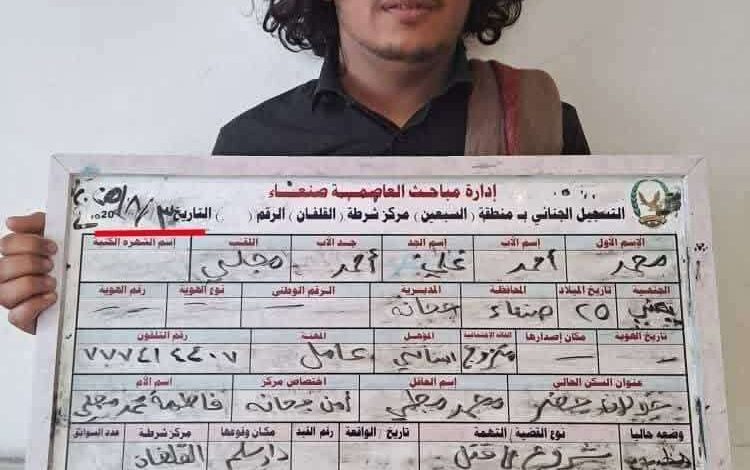 إدارة مباحث العاصمة صنعاء
التسجيل الجنائي بـ منطقة (السبعين) مركز شرطة (القلفان) الرقم ( ) التاريخ ٣ / ٨ / 20
الإسم الأول إسم الأب إسم الجد جد الأب اللقب إسم الشهره الكنية
محمد أحمد علي أحمد مجلي
الجنسية تاريخ الميلاد المحافظة المديرية الرقم الوطني نوع الهوية رقم الهوية
يمني ٢٥ صنعاء جحانه
تاريخ الهوية مكان إصدارها الحالة الإجتماعية المؤهل المهنة رقم التلفون
متزوج اساسي عامل ٧٧٧٤١٤٤٠٧
عنوان السكن الحالي إسم العاقل اختصاص مركز إسم الأم
محمد مجلي أمن جحانه فاطمة محمد مجلي
وضعه حاليا نوع القضية / التهمة تاريخ / الواقعة رقم القيد مكان وقوعها مركز شرطة عدد السوابق
شروع في قتل دار سلم القلفان